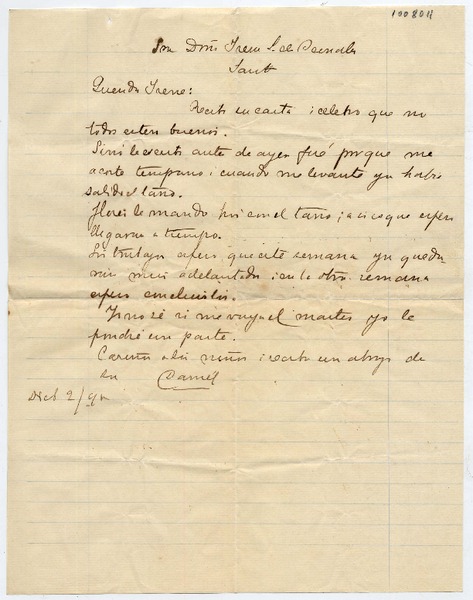 100804
Sra Doña Irene S. de
Sant
Querida Irene:
Recibí su carta i celebro que
todos esten buenos.
Si no le escribí antes de ayer fué porque me
acosté temprano i cuando me levanté ya habia
salido el
Flores le mando hoi con el i
llegaran a tiempo.
Los trabajos espero que esta semana ya
mui adelantados i en la otra semana
espero concluirlos.
Yo no sé si me vaya el martes yo le
pondré un parte.
Cariños a los niños i reciba un abrazo de
su Daniel
Dicb 2/90